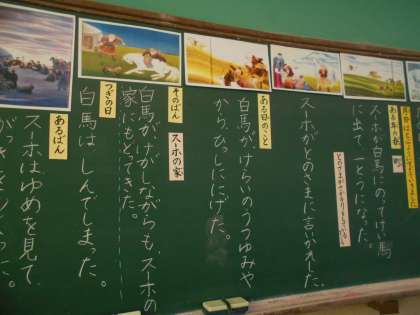 ある年の春
スーホは白馬にのってけい馬
に出て、一とうになった。
スーホがとのさまに言いかえした。
ある日のこと
白馬がけらいのうつゆみや
から、ひっしににげた。
そのばん
スーホの家
白馬が、けがしながらも、スーホの
家にもどってきた。
つぎの日
白馬は しんでしまった。
あるばん
スーホはゆめを見て、